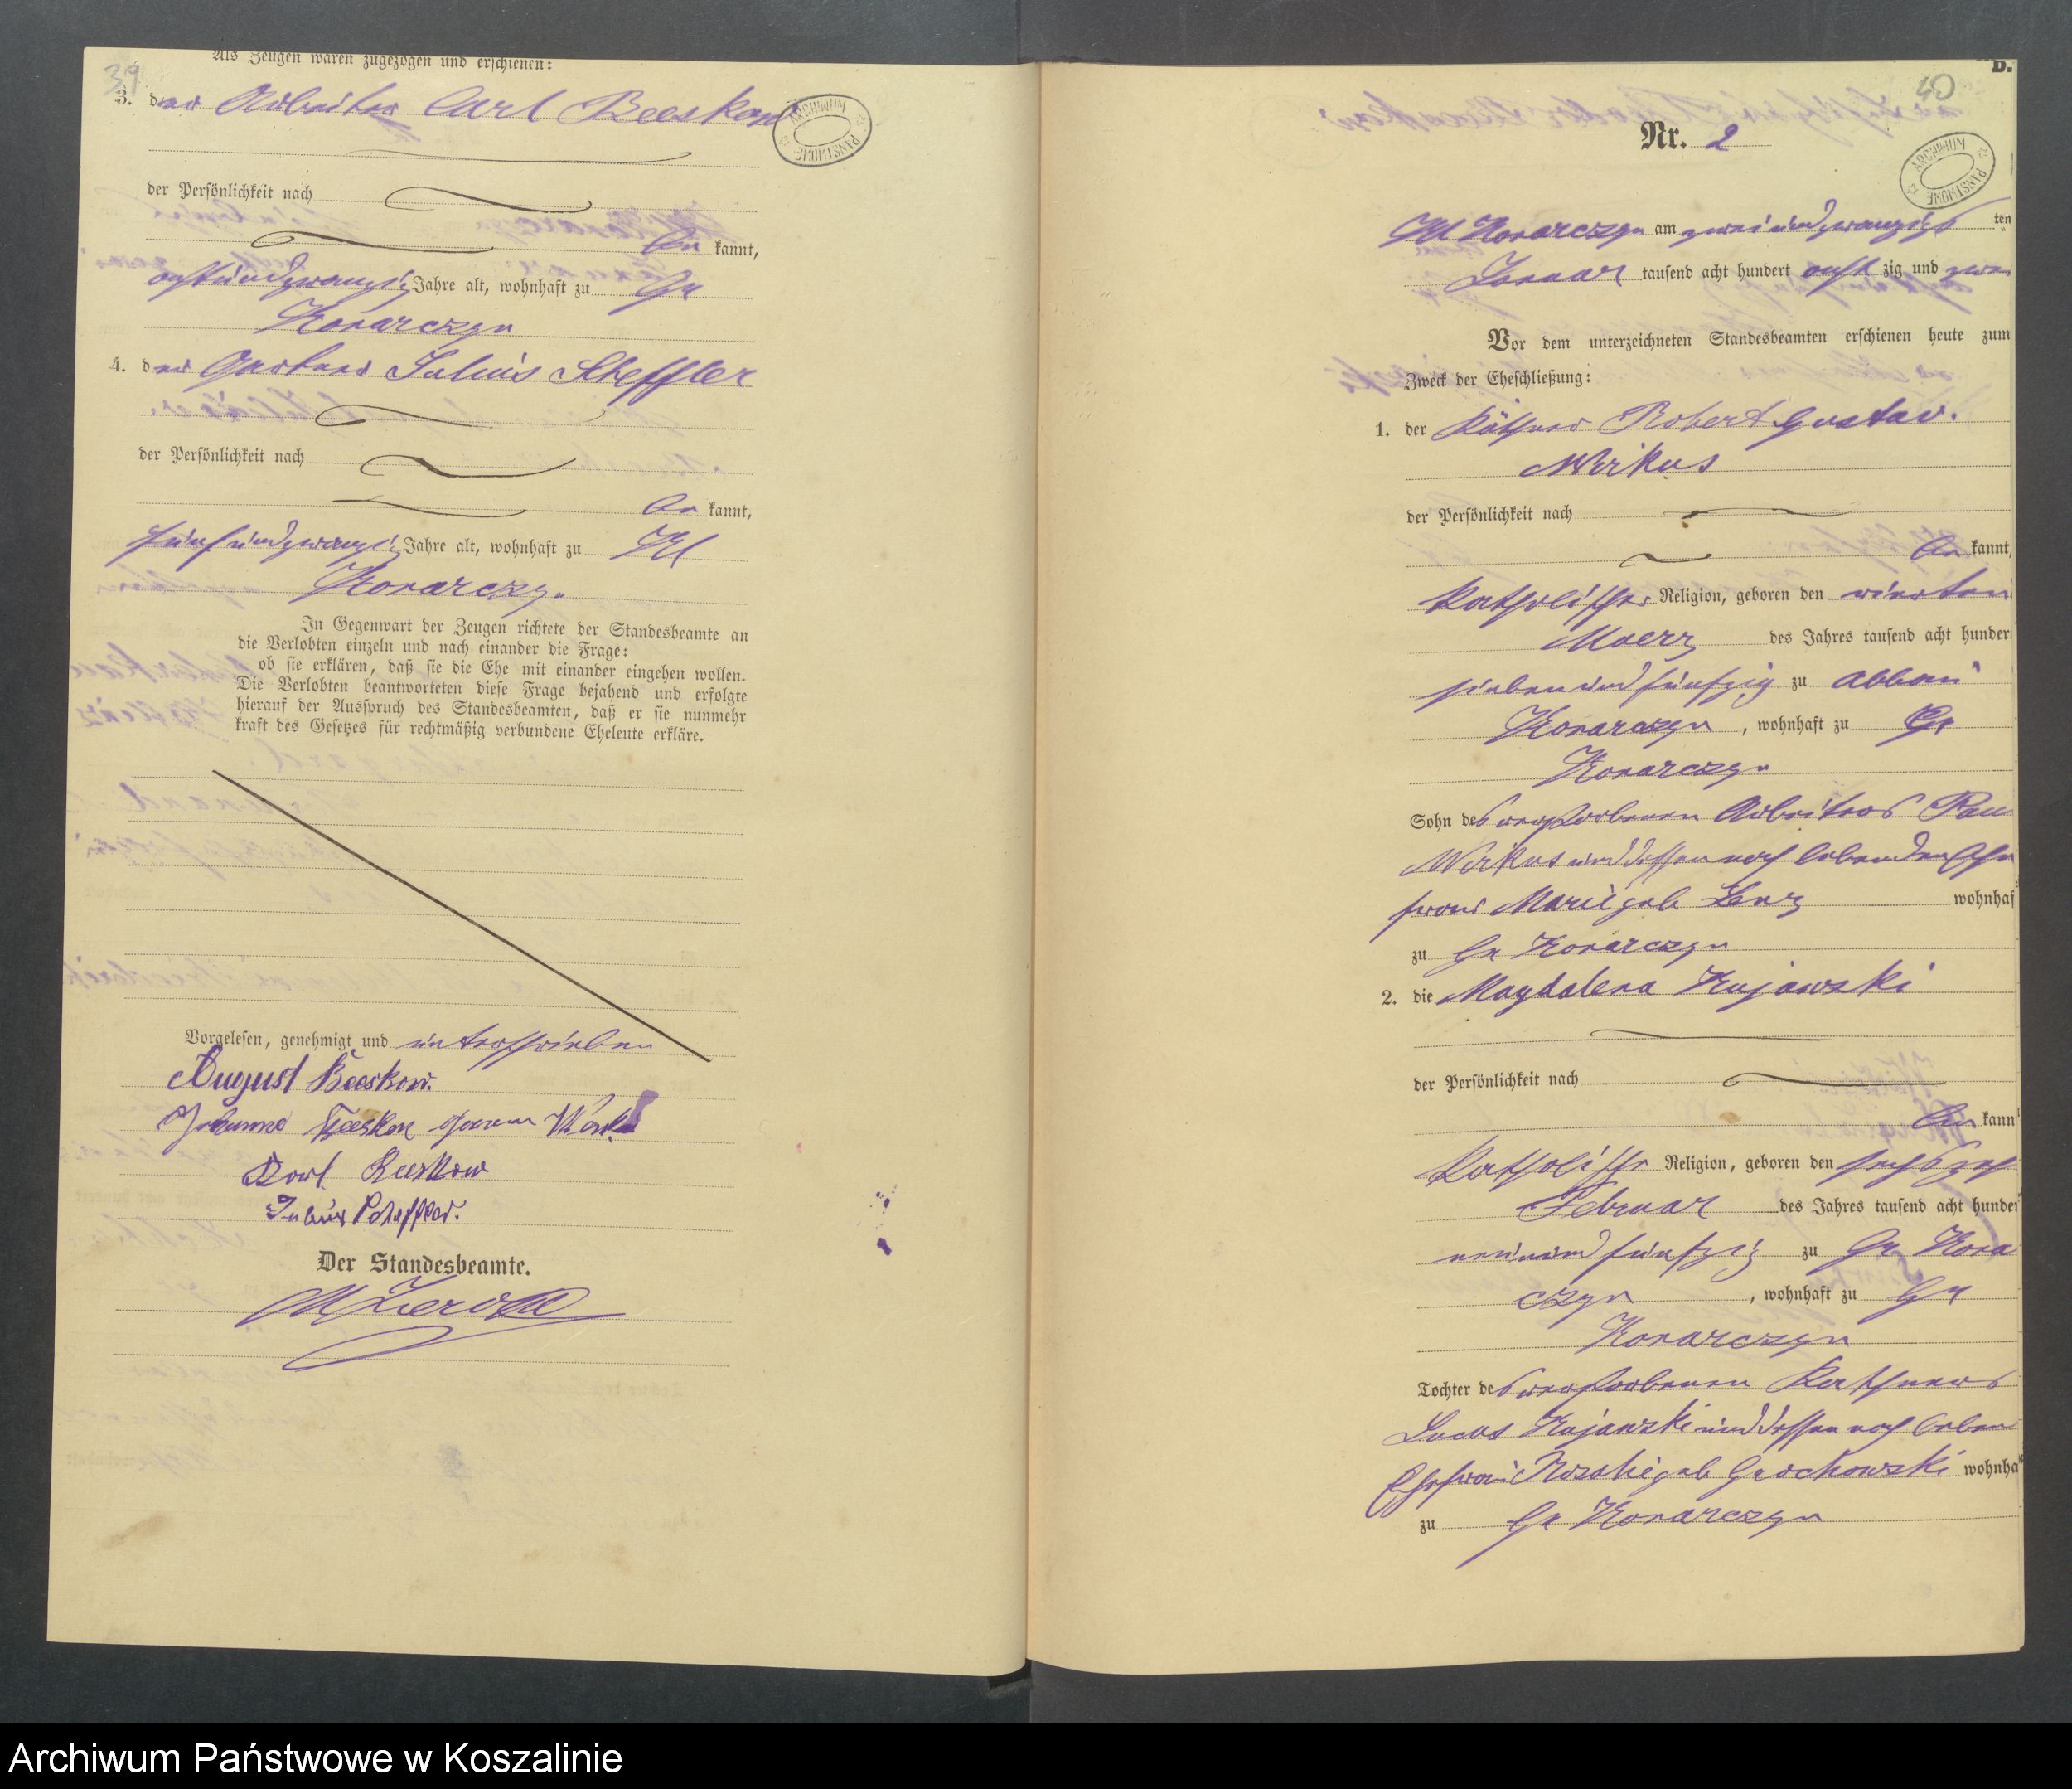 39
Als Zeugen waren zugezogen und erschienen:
3. der Arbeiter Carl Beeskow
ARCHIWUM PAŃSTWOWE
der Persönlichkeit nach
be kannt,
achtundzwanzig Jahre alt, wohnhaft zu Gr
Konarczyn
4. der Gärtner Julius Scheffler
der Persönlichkeit nach
be kannt,
fünfundzwanzig Jahre alt, wohnhaft zu Kl
Konarczyn
In Gegenwart der Zeugen richtete der Standesbeamte an
die Verlobten einzeln und nach einander die Frage:
ob sie erklären, daß sie die Ehe mit einander eingehen wollen.
Die Verlobten beantworteten diese Frage bejahend und erfolgte
hierauf der Ausspruch des Standesbeamten, daß er sie nunmehr
kraft des Gesetzes für rechtmäßig verbundene Eheleute erkläre.
Vorgelesen, genehmigt und unterschrieben
August Beeskow.
Johanne Beeskow
Karl Beeskow
Julius Scheffler.
Der Standesbeamte.
40
B.
Nr. 2
ARCHIWUM PAŃSTWOWE
Kl Konarczyn am zweiundzwanzigs ten
Januar tausend acht hundert acht zig und zwei
Vor dem unterzeichneten Standesbeamten erschienen heute zum
Zweck der Eheschließung:
1. der Käthner Robert Gustav
Wirkus
der Persönlichkeit nach
be kannt,
katholischer Religion, geboren den vierten
Maerz des Jahres tausend acht hunder
siebenundfünfzig zu Abbau
Konarczyn, wohnhaft zu Gr
Konarczyn
Sohn des verstorbenen Arbeiters
Wirkus und dessen noch lebenden Ehe
frau Marie geb Lenz wohnhaf
zu Gr Konarczyn
2. die Magdalena Kujawski
der Persönlichkeit nach
be kann
katholische Religion, geboren den sechszeh
Februar des Jahres tausend acht hunder
neunundfünfzig zu Gr Kona
czyn, wohnhaft zu Gr
Konarczyn
Tochter des verstorbenen Kathners
Lucas Kujawski und dessen noch leben
Ehefrau Rosalie geb Grochowski wohnha
zu Gr Konarczyn
Archiwum Państwowe w Koszalinie